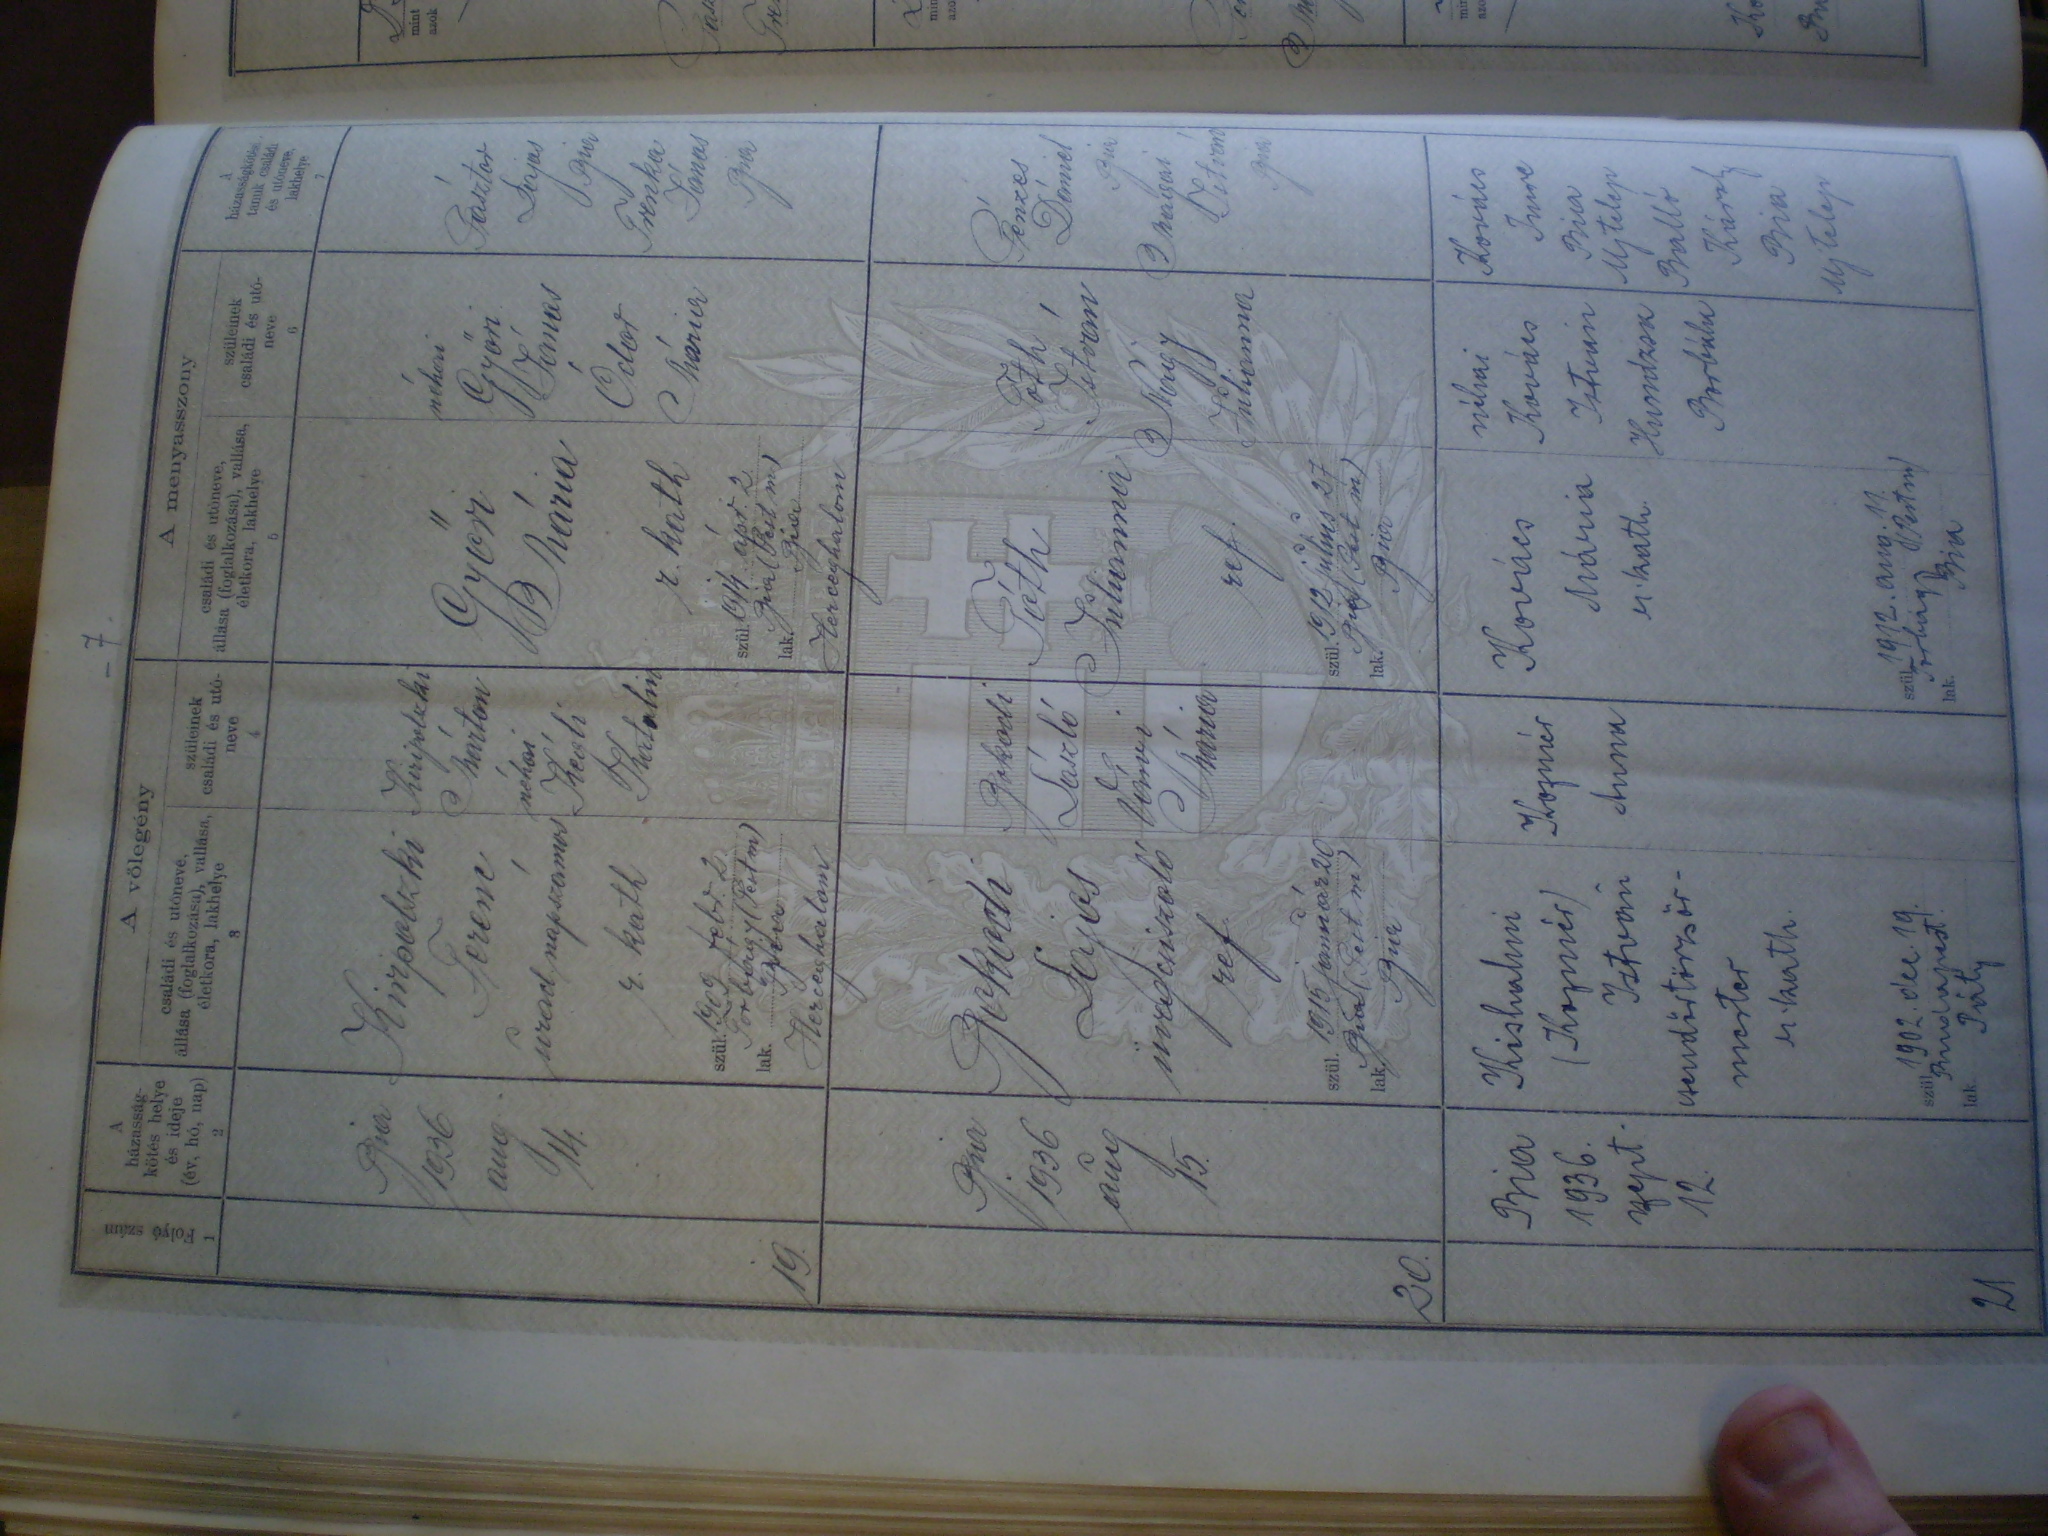 - 7.
Folyó szám
1
A
házasság-
kötés helye
és ideje
(év, hó, nap)
2
A vőlegény
családi és utóneve,
állása (foglalkozása), vallása,
életkora, lakhelye
3
szüleinek
családi és utó-
neve
4
A menyasszony
családi és utóneve,
állása (foglalkozása), vallása,
életkora, lakhelye
5
szüleinek
családi és utó-
neve
6
A
házasságkötési
tanuk családi
és utóneve,
lakhelye
7
19.
Bia
1936
aug
14.
Kiripolszki
Ferenc
urad. napszámos
r. kath
szül. 1909 febr. 2.
Torbágy (Pest m)
lak.
Herceghalom
Kiripolszki
Márton
néhai
Katalin
Győri
Mária
r. kath
szül. 1914. ápr. 2.
Bia (Pest m)
lak. Bia
Herceghalom
néhai
Győri
János
Odor
Mária
Pásztor
Lajos
Bia
Trenka
János
Bia
20.
Bia
1936
aug
15.
Bokodi
Lajos
üvegcsiszoló
ref
szül. 1915 január 20
Bia (Pest m)
lak. Bia
Bokodi
László
Mária
Tóth
Julianna
ref.
szül. 1912 julius 27
Bia (Pest m)
lak. Bia
Tóth
István
Nagy
Julianna
Pénzes
Dániel
Bia
István
Bia
21
Bia
1936.
szept.
12.
Kishalmi
(Kozmér)
István
csendőrtörzsőr-
mester
r. kath.
szül. 1902. dec. 19.
Budapest.
lak. Páty
Kozmér
Anna
Kovács
Mária
r. kath.
szül. 1912. aug. 11.
(Pestm)
lak. Bia
néhai
Kovács
István
Borbála
Kovács
Imre
Bia
Ujtelep
Balló
Károly
Bia
Ujtelep
mint
azok